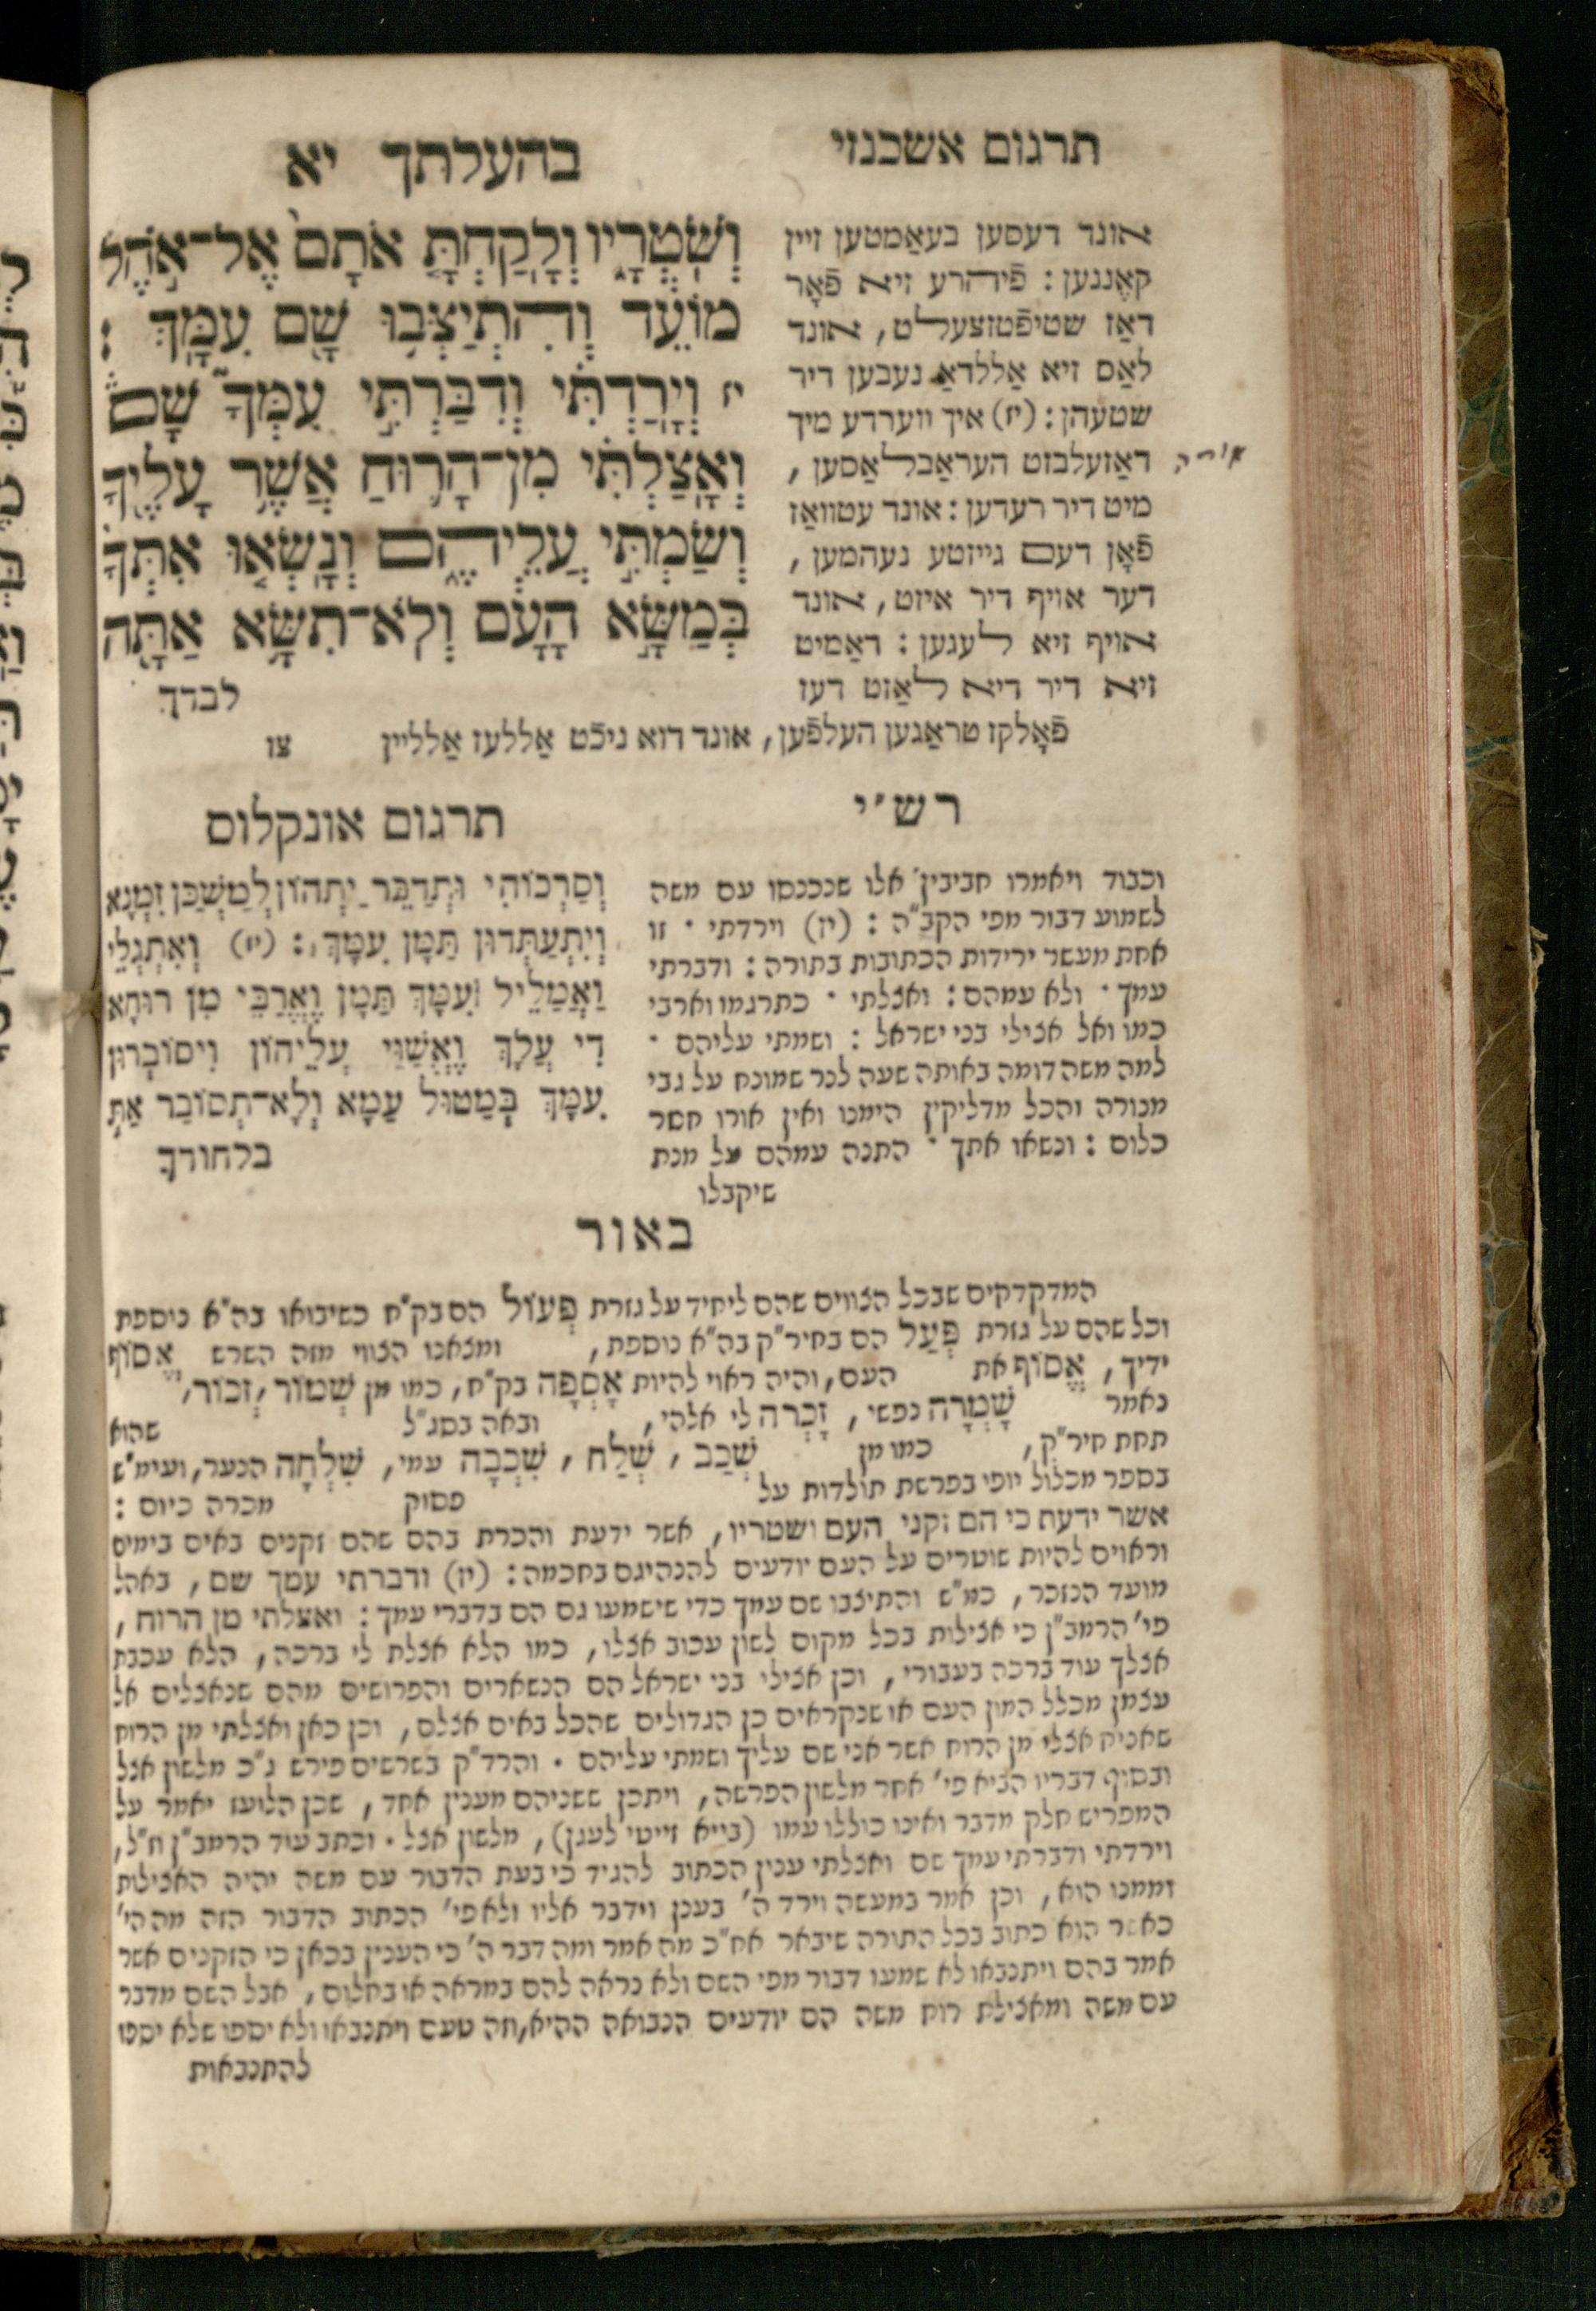 תרגום אשכנזי
בהעלתך יא
אונד דעסען בעאַמטען זיין
קאֶננען : פֿיהרע זיא פֿאָר
דאַז שטיפֿטזצעלט, אונד
לאַס זיא אַללדאַ נעבען דיר
שטעהן : (יז) איך ווערדע מיך
דאַזעלבזט העראַבלאַסען ,
מיט דיר רעדען : אונד עטוואַז
פֿאָן דעם גייזטע נעהמען ,
דער אויף דיר איזט, אונד
אויף זיא לעגען : דאַמיט
זיא דיר דיא לאַזט דעז
פֿאָלקז טראַגען העלפֿען, אונד דוא ניכֿט אַללעז אַלליין
צו
וְשֹׁטְרָ֑יו וְלָקַחְתָּ֤ אֹתָם֙ אֶל־אֹ֣הֶל
מוֹעֵ֔ד וְהִתְיַצְּב֥וּ שָׁ֖ם עִמָּֽךְ :
יז וְיָרַדְתִּ֗י וְדִבַּרְתִּ֣י עִמְּךָ֮ שָׁם֒
וְאָצַלְתִּ֗י מִן־הָר֛וּחַ אֲשֶׁ֥ר עָלֶ֖יךָ
וְשַׂמְתִּ֣י עֲלֵיהֶ֑ם וְנָשְׂא֤וּ אִתְּךָ֙
בְּמַשָּׂ֣א הָעָ֔ם וְלֹא־תִשָּׂ֥א אַתָּ֖ה
לבדך
רש״י
וכבוד ויאמרו חביבין אלו שנכנסו עם משה
לשמוע דבור מפי הקב״ה : (יז) וירדתי ּ זו
אחת מעשר ירידות הכתובות בתורה : ודברתי
עמך ּ ולא עמהם : ואצלתי ּ כתרגמו וארבי
כמו ואל אצילי בני ישראל : ושמתי עליהם ּ
למה משה דומה באותה שעה לנר שמונח על גבי
מנורה והכל מדליקין הימנו ואין אורו חסר
כלום : ונשאו אתך ּ התנה עמהם על מנת
שיקבלו
תרגום אונקלוס
וְסַרְכוֹהִי וּתְדַבֵּר יַתְהוֹן לְמַשְׁכַּן זִמְנָא
וְיִתְעַתְּדוּן תַּמָּן עִמָּךְ : (יז) וְאִתְגְּלֵי
וַאֲמַלֵּיל עִמָּךְ תַּמָּן וֶאֱרַבֵּי מִן רוּחָא
דִּי עֲלָךְ וֶאֱשַׁוֵּי עֲלֵיהוֹן וִיסוֹבְרוּן
עִמָּךְ בְּמַטּוּל עַמָּא וְלָא־תְסוֹבַר אַתְּ
בלחודך
באור
המדקדקים שבכל הצווים שהם ליחיד על גזרת פְּעוֹל הם בק״ח כשיבואו בה״א נוספת
וכל שהם על גזרת פְּעַל הם בחיר״ק בה״א נוספת , ומצאנו הצווי מזה השרש אֱסוֹף
ידיך , אֱסוֹף את העם, והיה ראוי להיות אָסְפָה בק״ח, כמו מן שְׁמוֹר, זְכוֹר,
נאמר שָׁמְרָה נפשי, זָכְרָה לי אלהי, ובאה בסג״ל שהוא
תחת חיר״ק, כמו מן שְׁכַב , שְׁלַח , שִׁכְבָה עמי, שִׁלְחָה הנער, ועיימ״ש
בספר מכלול יופי בפרשת תולדות על פסוק מכרה כיום :
אשר ידעת כי הם זקני העם ושטריו, אשר ידעת והכרת בהם שהם זקנים באים בימים
וראוים להיות שוטרים על העם יודעים להנהיגם בחכמה : (יז) ודברתי עמך שם, באהל
מועד הנזכר, כמ״ש והתיצבו שם עמך כדי שישמעו גם הם בדברי עמך : ואצלתי מן הרוח ,
פי׳ הרמב״ן כי אצילות בכל מקום לשון עכוב אצלו, כמו הלא אצלת לי ברכה, הלא עכבת
אצלך עוד ברכה בעבורי, וכן אצילי בני ישראל הם הנשארים והפרושים מהם שנאצלים אל
עצמן מכלל המון העם או שנקראים כן הגדולים שהכל באים אצלם, וכן כאן ואצלתי מן הרוח
שאניח אצלי מן הרוח אשר אני שם עליך ושמתי עליהם . והרד״ק בשרשים פירש ג״כ מלשון אצל
ובסוף דבריו הביא פי׳ אחר מלשון הפרשה, ויתכן ששניהם מענין אחד, שכן הלועז יאמר על
המפריש חלק מדבר ואינו כוללו עמו (בייא זייטי לעגן), מלשון אצל . וכתב עוד הרמב״ן וז״ל,
וירדתי ודברתי עמך שם ואצלתי ענין הכתוב להגיד כי בעת הדבור עם משה יהיה האצילות
וממנו הוא, וכן אמר במעשה וירד ה׳ בענן וידבר אליו ולא פי׳ הכתוב הדבור הזה מה הי׳
כאשר הוא כתוב בכל התורה שיבאר אח״כ מה אמר ומה דבר ה׳ כי הענין בכאן כי הזקנים אשר
אמר בהם ויתנבאו לא שמעו דבור מפי השם ולא נראה להם במראה או בחלום, אבל השם מדבר
עם משה ומאצילת רוח משה הם יודעים הנבואה ההיא, וזה טעם ויתנבאו ולא יספו שלא יספו
להתנבאות